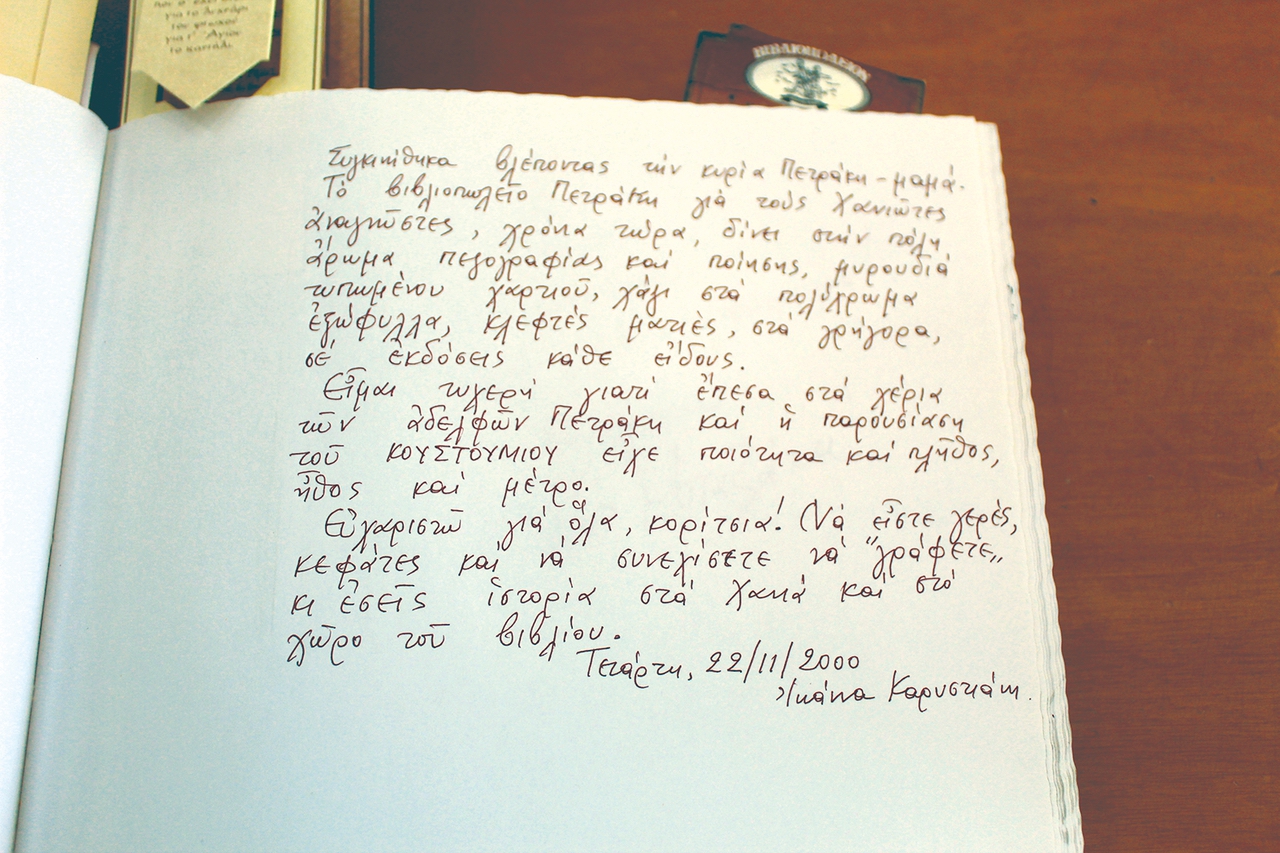 για το λυχνάρι
του φτωχού
για τ' Άγιου
το καντήλι.
ΒΙΒΛΙΟΠΩΛΕΙΟΝ
Συγκινήθηκα βλέποντας τήν κυρία Πετράκη - μαμά.
Τό βιβλιοπωλεῖο Πετράκη γιά τούς Χανιῶτες
ἀναγνῶστες, χρόνια τώρα, δίνει στήν πόλη
ἄρωμα πεζογραφίας καί ποίησης, μυρουδιά
τυπωμένου χαρτιοῦ, χάζι στά πολύχρωμα
ἐξώφυλλα, κλεφτές ματιές, στά γρήγορα,
σέ ἐκδόσεις κάθε εἴδους.
Εἶμαι τυχερή γιατί ἔπεσα στά χέρια
τῶν ἀδελφῶν Πετράκη καί ἡ παρουσίαση
τοῦ ΚΟΥΣΤΟΥΜΙΟΥ εἶχε ποιότητα καί πλῆθος,
ἦθος καί μέτρο.
Εὐχαριστῶ γιά ὅλα, κορίτσια! Νά εἶστε γερές,
κεφάτες καί νά συνεχίσετε νά "γράφετε"
κι ἐσεῖς ἱστορία στά Χανιά καί στό
χῶρο τοῦ βιβλίου.
Τετάρτη, 22/11/2000
Ἰωάννα Καρυστιάνη.